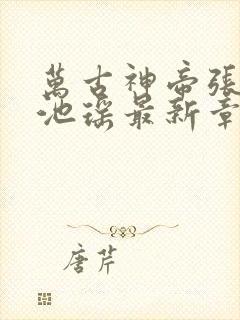 萬古神帝張
池瑤最新章
唐芹